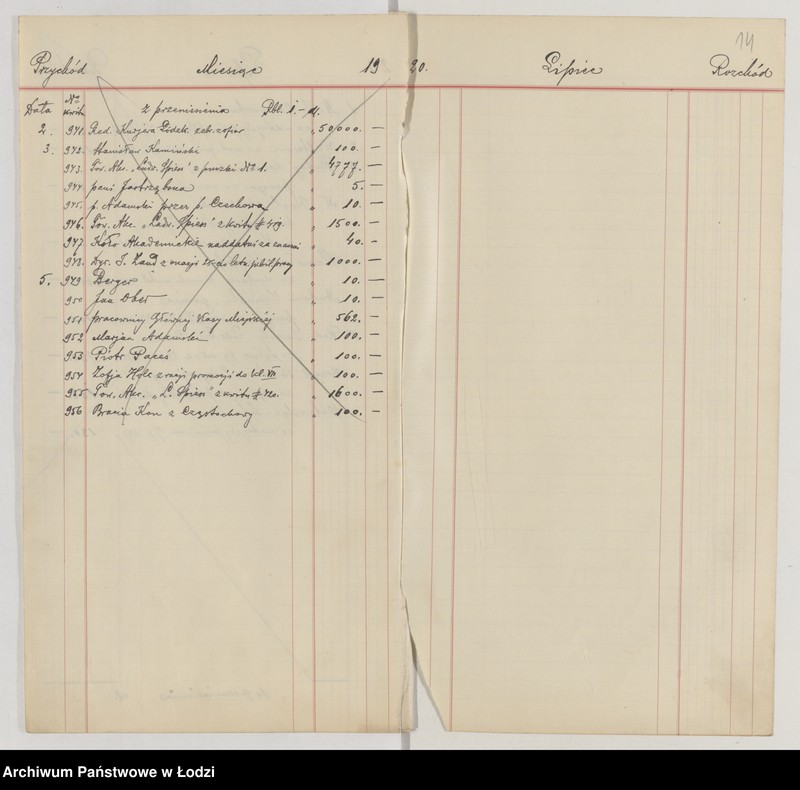 14
Przychód Miesiąc 19 20. Lipiec Rozchód
Data № kwitu z przeniesienia Obl. 1.-M.
2. 941. Red. Kurjera Łódzk. zebr. z ofiar " 50000. —
3. 942. Stanisław Kamiński 100. —
943. Tow. Akc. „Ludw. Spiess" z puszki № 1. " 4777. —
944 pani Jastrzębona " 5. —
945. p. Adamski przez p. Czechową " 10. —
946. Tow. Akc. „Ludw. Spiess" z kwitu # 419. " 1500. —
947. Koło Akademickie naddatki za " 40. -
948. Dyr. J. Zand z racji " 1000. —
5. 949 Berger " 10. —
950 Jan Ober " 10. —
951 pracownicy Głównej Kasy Miejskiej " 562. —
952 Marjan Adamski " 100. —
953 Piotr Pacześ " 100. —
954 Zofja z racji promocji do kl. VII " 100. —
955 Tow. Akc. „L. Spiess" z kwitu # 420. " 1600. —
956 Bracia Kon z Częstochowy " 100. —
Archiwum Państwowe w Łodzi